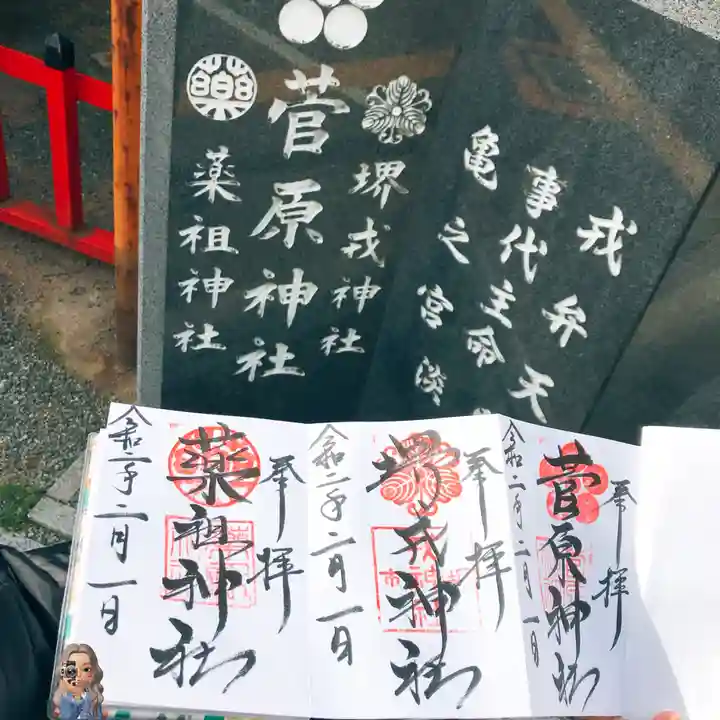 戎弁天
事代主命
亀之宮
堺戎神社
菅原神社
薬祖神社
薬
奉拝
菅原神社
令和二年二月一日
奉拝
堺戎神社
令和二年二月一日
奉拝
薬祖神社
令和二年二月一日